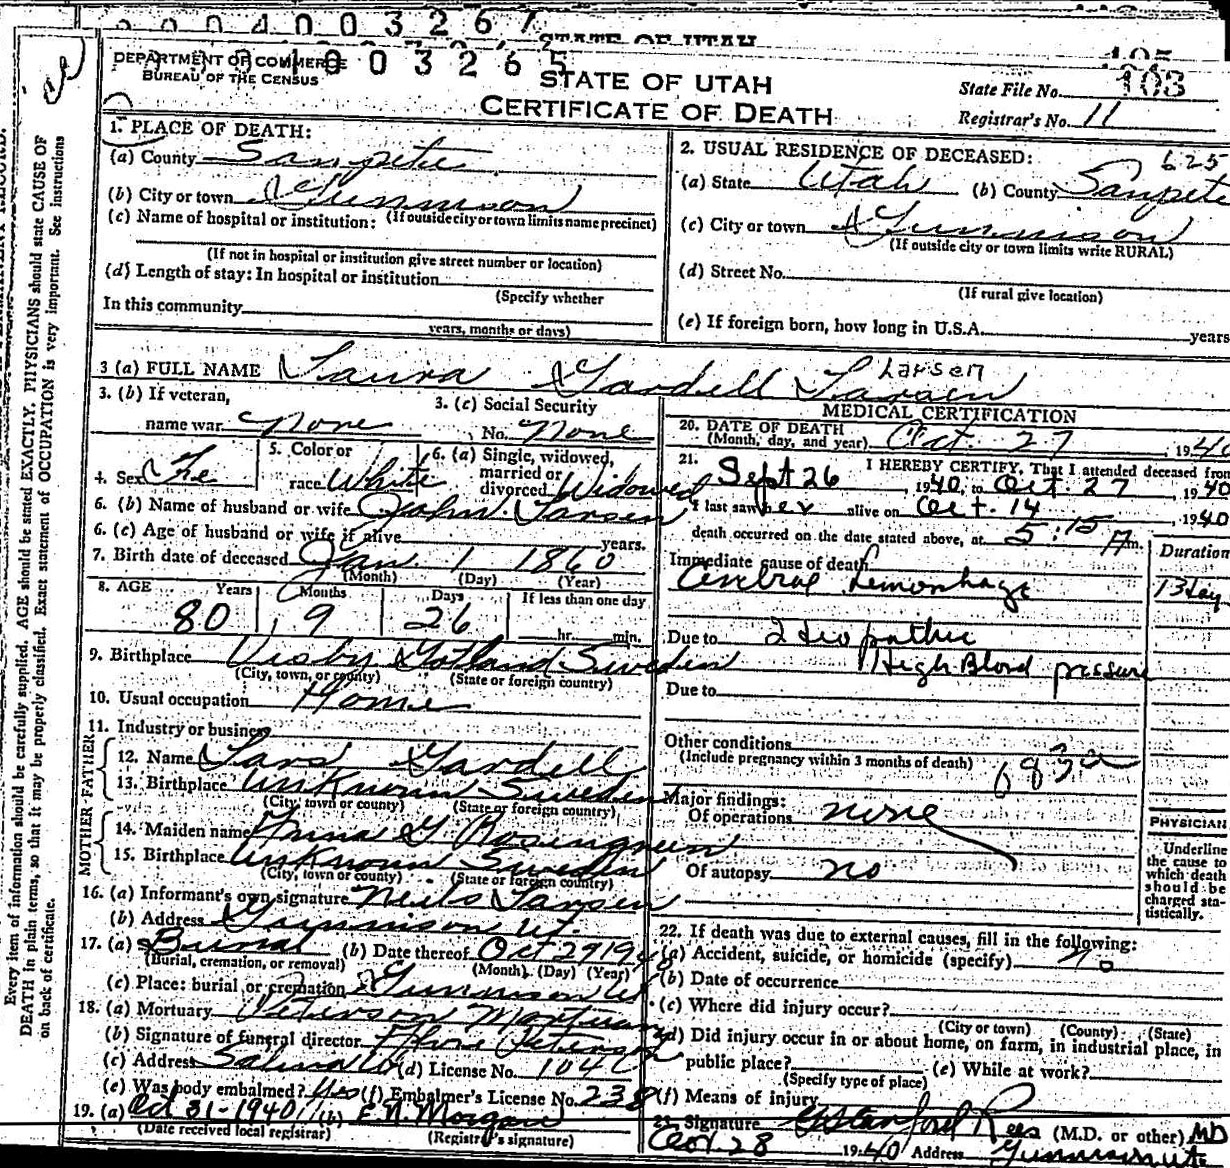 2004003267
STATE OF UTAH
105
DEPARTMENT OF COMMERCE
BUREAU OF THE CENSUS
1003265
STATE OF UTAH
CERTIFICATE OF DEATH
State File No. 103
Registrar's No. 11
1. PLACE OF DEATH:
(a) County Sanpete
(b) City or town Gunnison
(If outside city or town limits name precinct)
(c) Name of hospital or institution:
(If not in hospital or institution give street number or location)
(d) Length of stay: In hospital or institution
(Specify whether
In this community
years, months or days)
2. USUAL RESIDENCE OF DECEASED: 625
(a) State Utah (b) County Sanpete
(c) City or town Gunnison
(If outside city or town limits write RURAL)
(d) Street No.
(If rural give location)
(e) If foreign born, how long in U.S.A. years
3 (a) FULL NAME Laura Gardell Larsen
Larsen
3. (b) If veteran,
name war None
3. (c) Social Security
No. None
4. Sex Fe
5. Color or
race White
6. (a) Single, widowed,
married or
divorced Widowed
6. (b) Name of husband or wife John Larsen
6. (c) Age of husband or wife if alive years.
7. Birth date of deceased Jan 1 1860
(Month) (Day) (Year)
8. AGE Years Months Days If less than one day
80 9 26 hr. min.
9. Birthplace Visby Gotland Sweden
(City, town, or county) (State or foreign country)
10. Usual occupation Home
11. Industry or business
FATHER
12. Name Lars Gardell
13. Birthplace Unknown Sweden
(City, town or county) (State or foreign country)
MOTHER
14. Maiden name Anna G Rosengreen
15. Birthplace Unknown Sweden
(City, town or county) (State or foreign country)
16. (a) Informant's own signature Neils Larsen
(b) Address Gunnison Ut.
17. (a) Burial (b) Date thereof Oct 29 19
(Burial, cremation, or removal) (Month) (Day) (Year)
(c) Place: burial or cremation Gunnison Ut
18. (a) Mortuary Peterson Mortuary
(b) Signature of funeral director Peterson
(c) Address Salina Ut (d) License No. 104
(e) Was body embalmed? Yes (f) Embalmer's License No. 238
19. (a) Oct 31-1940 (b) E N Morgan
(Date received local registrar) (Registrar's signature)
MEDICAL CERTIFICATION
20. DATE OF DEATH
(Month, day, and year) Oct. 27 1940
21. I HEREBY CERTIFY, That I attended deceased from
Sept 26 1940, to Oct. 27 1940
I last saw her alive on Oct. 14 1940
death occurred on the date stated above, at 5:15 A m.
Duration
Immediate cause of death
Cerebral Hemorrhage 13 day
Due to Idiopathic
High Blood pressure
Due to
Other conditions
(Include pregnancy within 3 months of death) 83a
Major findings:
Of operations none
Of autopsy no
PHYSICIAN
Underline
the cause to
which death
should be
charged sta-
tistically.
22. If death was due to external causes, fill in the following:
(a) Accident, suicide, or homicide (specify) No
(b) Date of occurrence
(c) Where did injury occur?
(City or town) (County) (State)
(d) Did injury occur in or about home, on farm, in industrial place, in
public place? (e) While at work?
(Specify type of place)
(f) Means of injury
23. Signature G Stanford Rees (M.D. or other) MD
Oct. 28 1940 Address Gunnison Ut.
Every item of information should be carefully supplied. AGE should be stated EXACTLY. PHYSICIANS should state CAUSE OF
DEATH in plain terms, so that it may be properly classified. Exact statement of OCCUPATION is very important. See Instructions
on back of certificate.